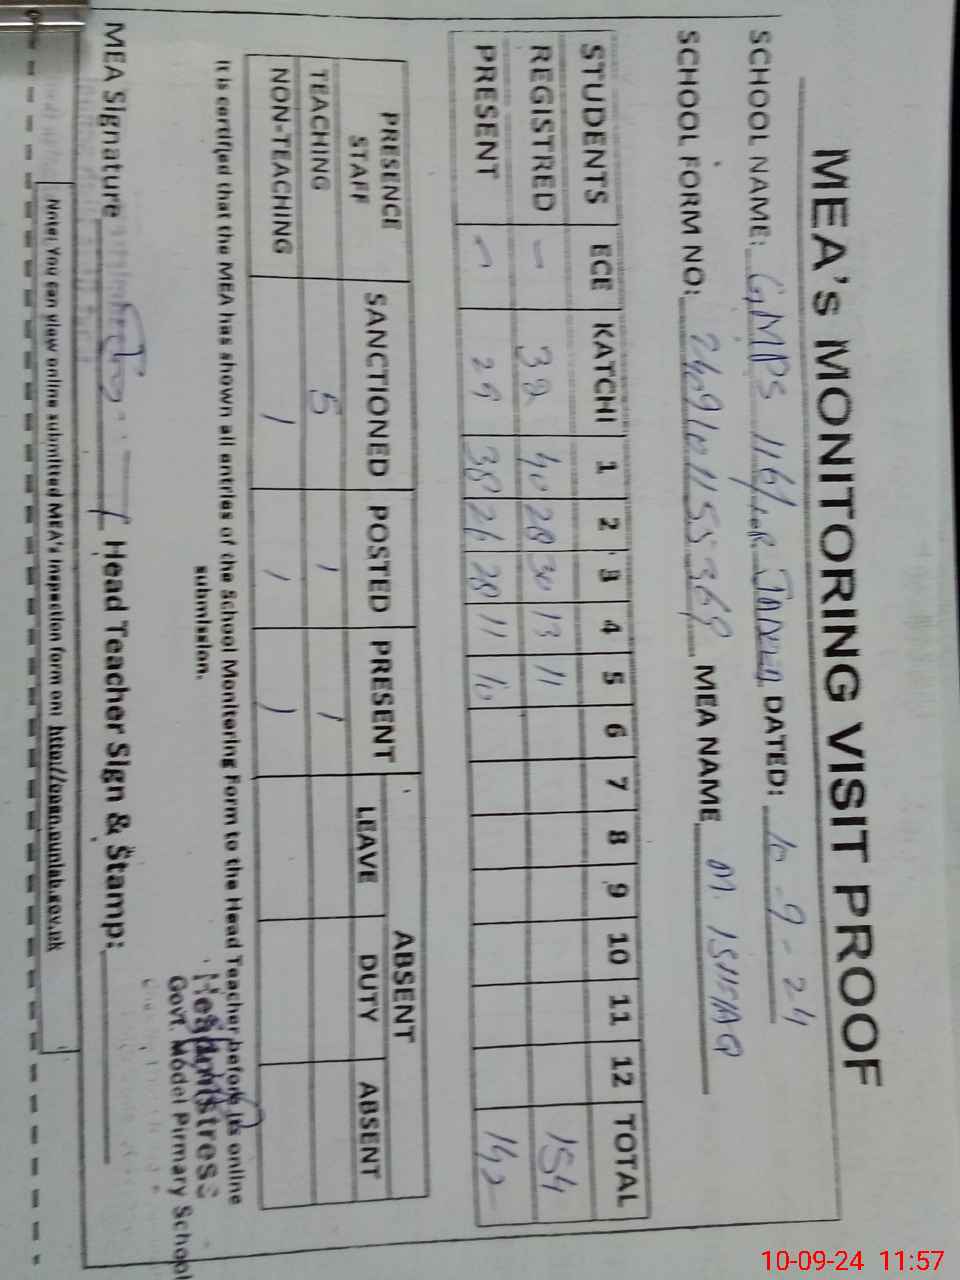 MEA's MONITORING VISIT PROOF
SCHOOL NAME: GMPS 116/ DATED: 10-9-24
SCHOOL FORM NO: MEA NAME M. ISHAQ
STUDENTS ECE KATCHI 1 2 3 4 5 6 7 8 9 10 11 12 TOTAL
REGISTRED - 32 40 28 30 13 11 154
PRESENT - 29 38 26 28 11 10 142
PRESENCE STAFF SANCTIONED POSTED PRESENT ABSENT
LEAVE DUTY ABSENT
TEACHING 5 1 1
NON-TEACHING 1 1 1
It is certified that the MEA has shown all entries of the School Monitoring Form to the Head Teacher before its online
submission.
Headmistress
Govt. Model Pirmary School
MEA Signature Head Teacher Sign & Stamp:
Note: You can view online submitted MEA's inspection form on: http://open.punjab.gov.pk
10-09-24 11:57